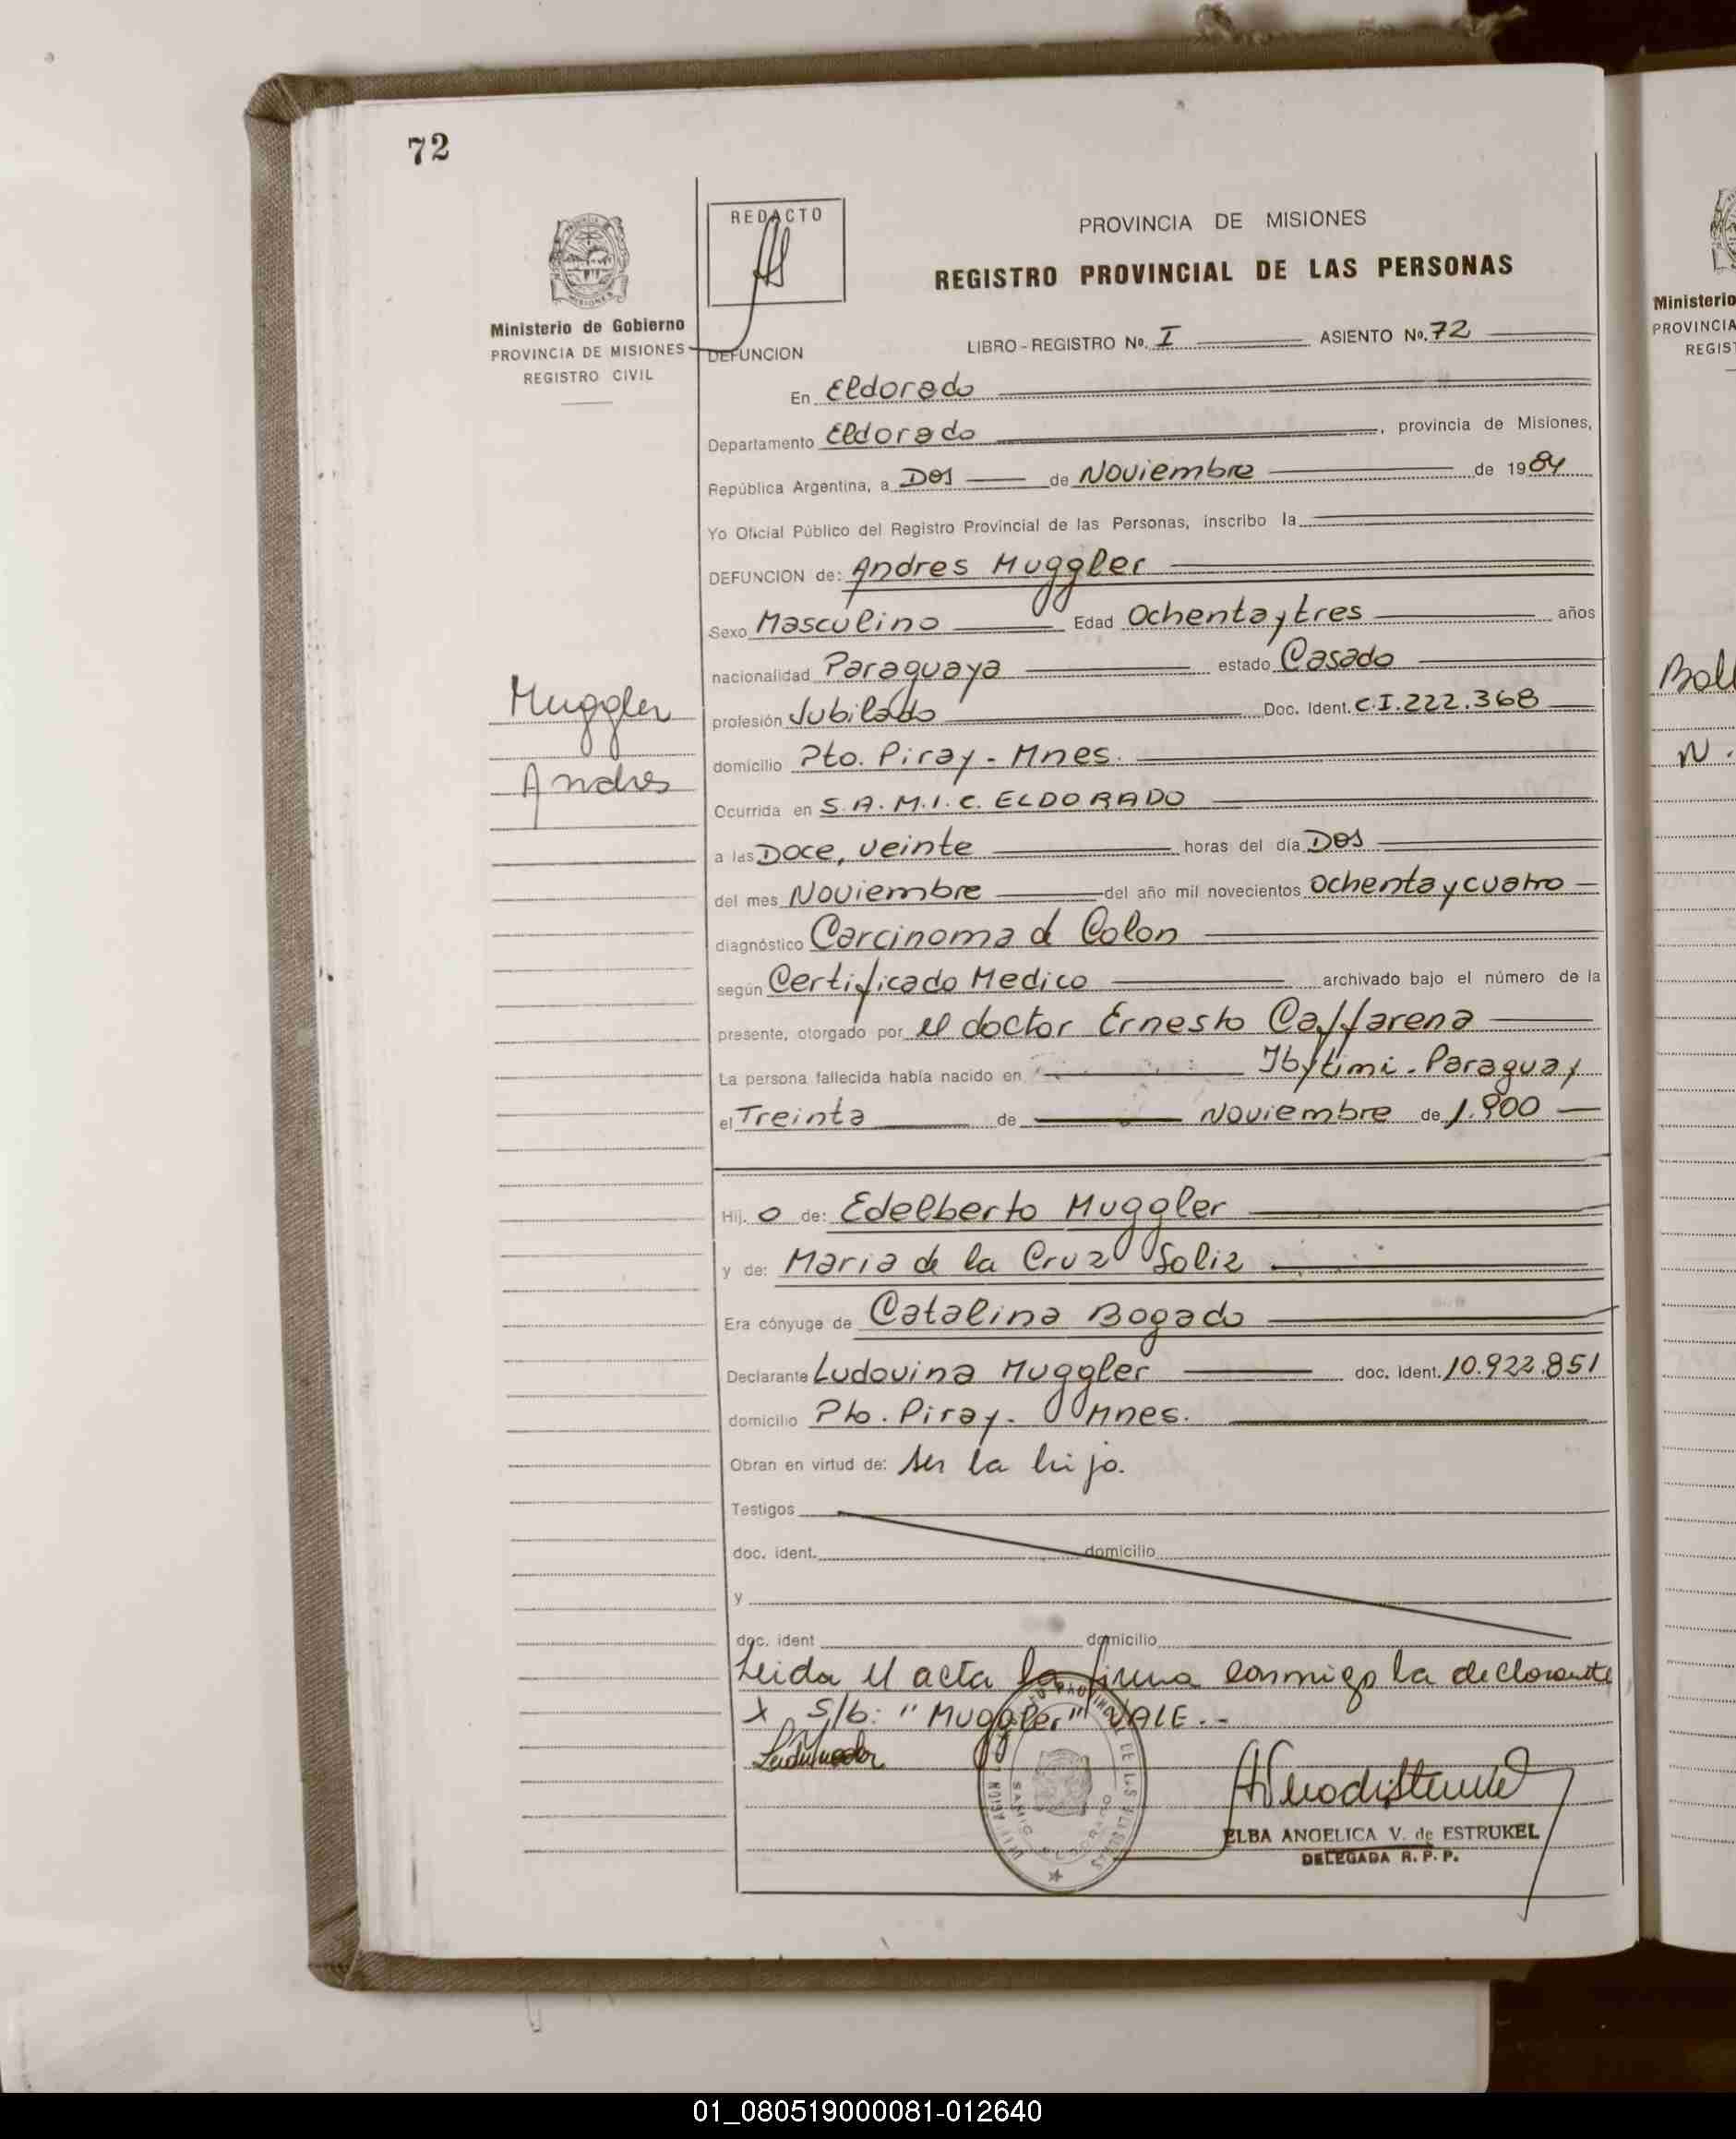 72
REDACTO
PROVINCIA DE MISIONES
REGISTRO PROVINCIAL DE LAS PERSONAS
Ministerio de Gobierno
PROVINCIA DE MISIONES
REGISTRO CIVIL
DEFUNCION
LIBRO-REGISTRO No. I ASIENTO No. 72
En Eldorado
Departamento Eldorado, provincia de Misiones,
República Argentina, a Dos de Noviembre de 1984
Yo Oficial Público del Registro Provincial de las Personas, inscribo la
DEFUNCION de: Andres Muggler
Sexo Masculino Edad Ochenta y tres años
nacionalidad Paraguaya estado Casado
Muggler
Andres
profesión Jubilado Doc. Ident. C.I.222.368
domicilio Pto. Piray - Mnes.
Ocurrida en S.A.M.I.C. ELDORADO
a las Doce, veinte horas del día Dos
del mes Noviembre del año mil novecientos ochenta y cuatro
diagnóstico Carcinoma d Colon
según Certificado Medico archivado bajo el número de la
presente, otorgado por el doctor Ernesto Caffarena
La persona fallecida había nacido en Ibytimi - Paraguay
el Treinta de Noviembre de 1.900
Hij. o de: Edelberto Muggler
y de: Maria de la Cruz Soliz
Era cónyuge de Catalina Bogado
Declarante Ludovina Muggler doc. Ident. 10.922.851
domicilio Pto. Piray - Mnes.
Obran en virtud de: ser la hija.
Testigos
doc. ident. domicilio
y
doc. ident domicilio
Leida el acta la firma conmigo la declarante
X S/b: "Muggler" VALE.-
ELBA ANGELICA V. de ESTRUKEL
DELEGADA R. P. P.
Ministerio
PROVINCIA
REGIST
Boll
N.
01_080519000081-012640